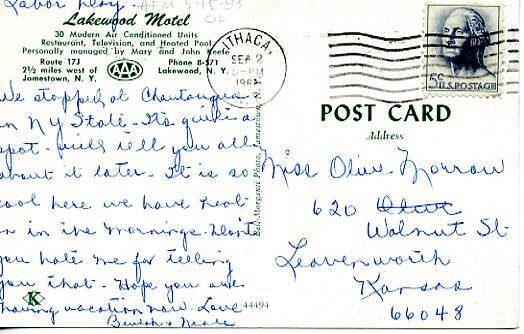 Labor Day.
AFM 5-15-93
OL
Lakewood Motel
30 Modern Air Conditioned Units
Restaurant, Television, and Heated Pool
Personally managed by Mary and John Keefe
Route 17J
2½ miles west of
Jamestown, N. Y.
AAA
Phone 8-571
Lakewood, N. Y.
We stopped at Chautauqua
in NY State - It's quite a
spot - will tell you all
about it later - It is so
cool here we have heat
on in the mornings. Don't
you hate me for telling
you that - Hope you are
having vacation now Love
Beulah &
K
44494
ITHACA,
SEP 2
5-PM
5¢ U.S. POSTAGE
POST CARD
Address
Miss Olive Morrow
620 Olive
Walnut St.
Leavenworth
Kansas
66048